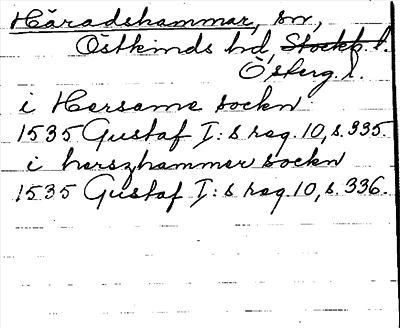 Häradshammar, sn,
Östkinds hd, Stockh. l.
Österg. l.
i Hersame sockn
1535 Gustaf I:s reg. 10, s. 335.
i herszhammer sockn
1535 Gustaf I:s reg. 10, s. 336.